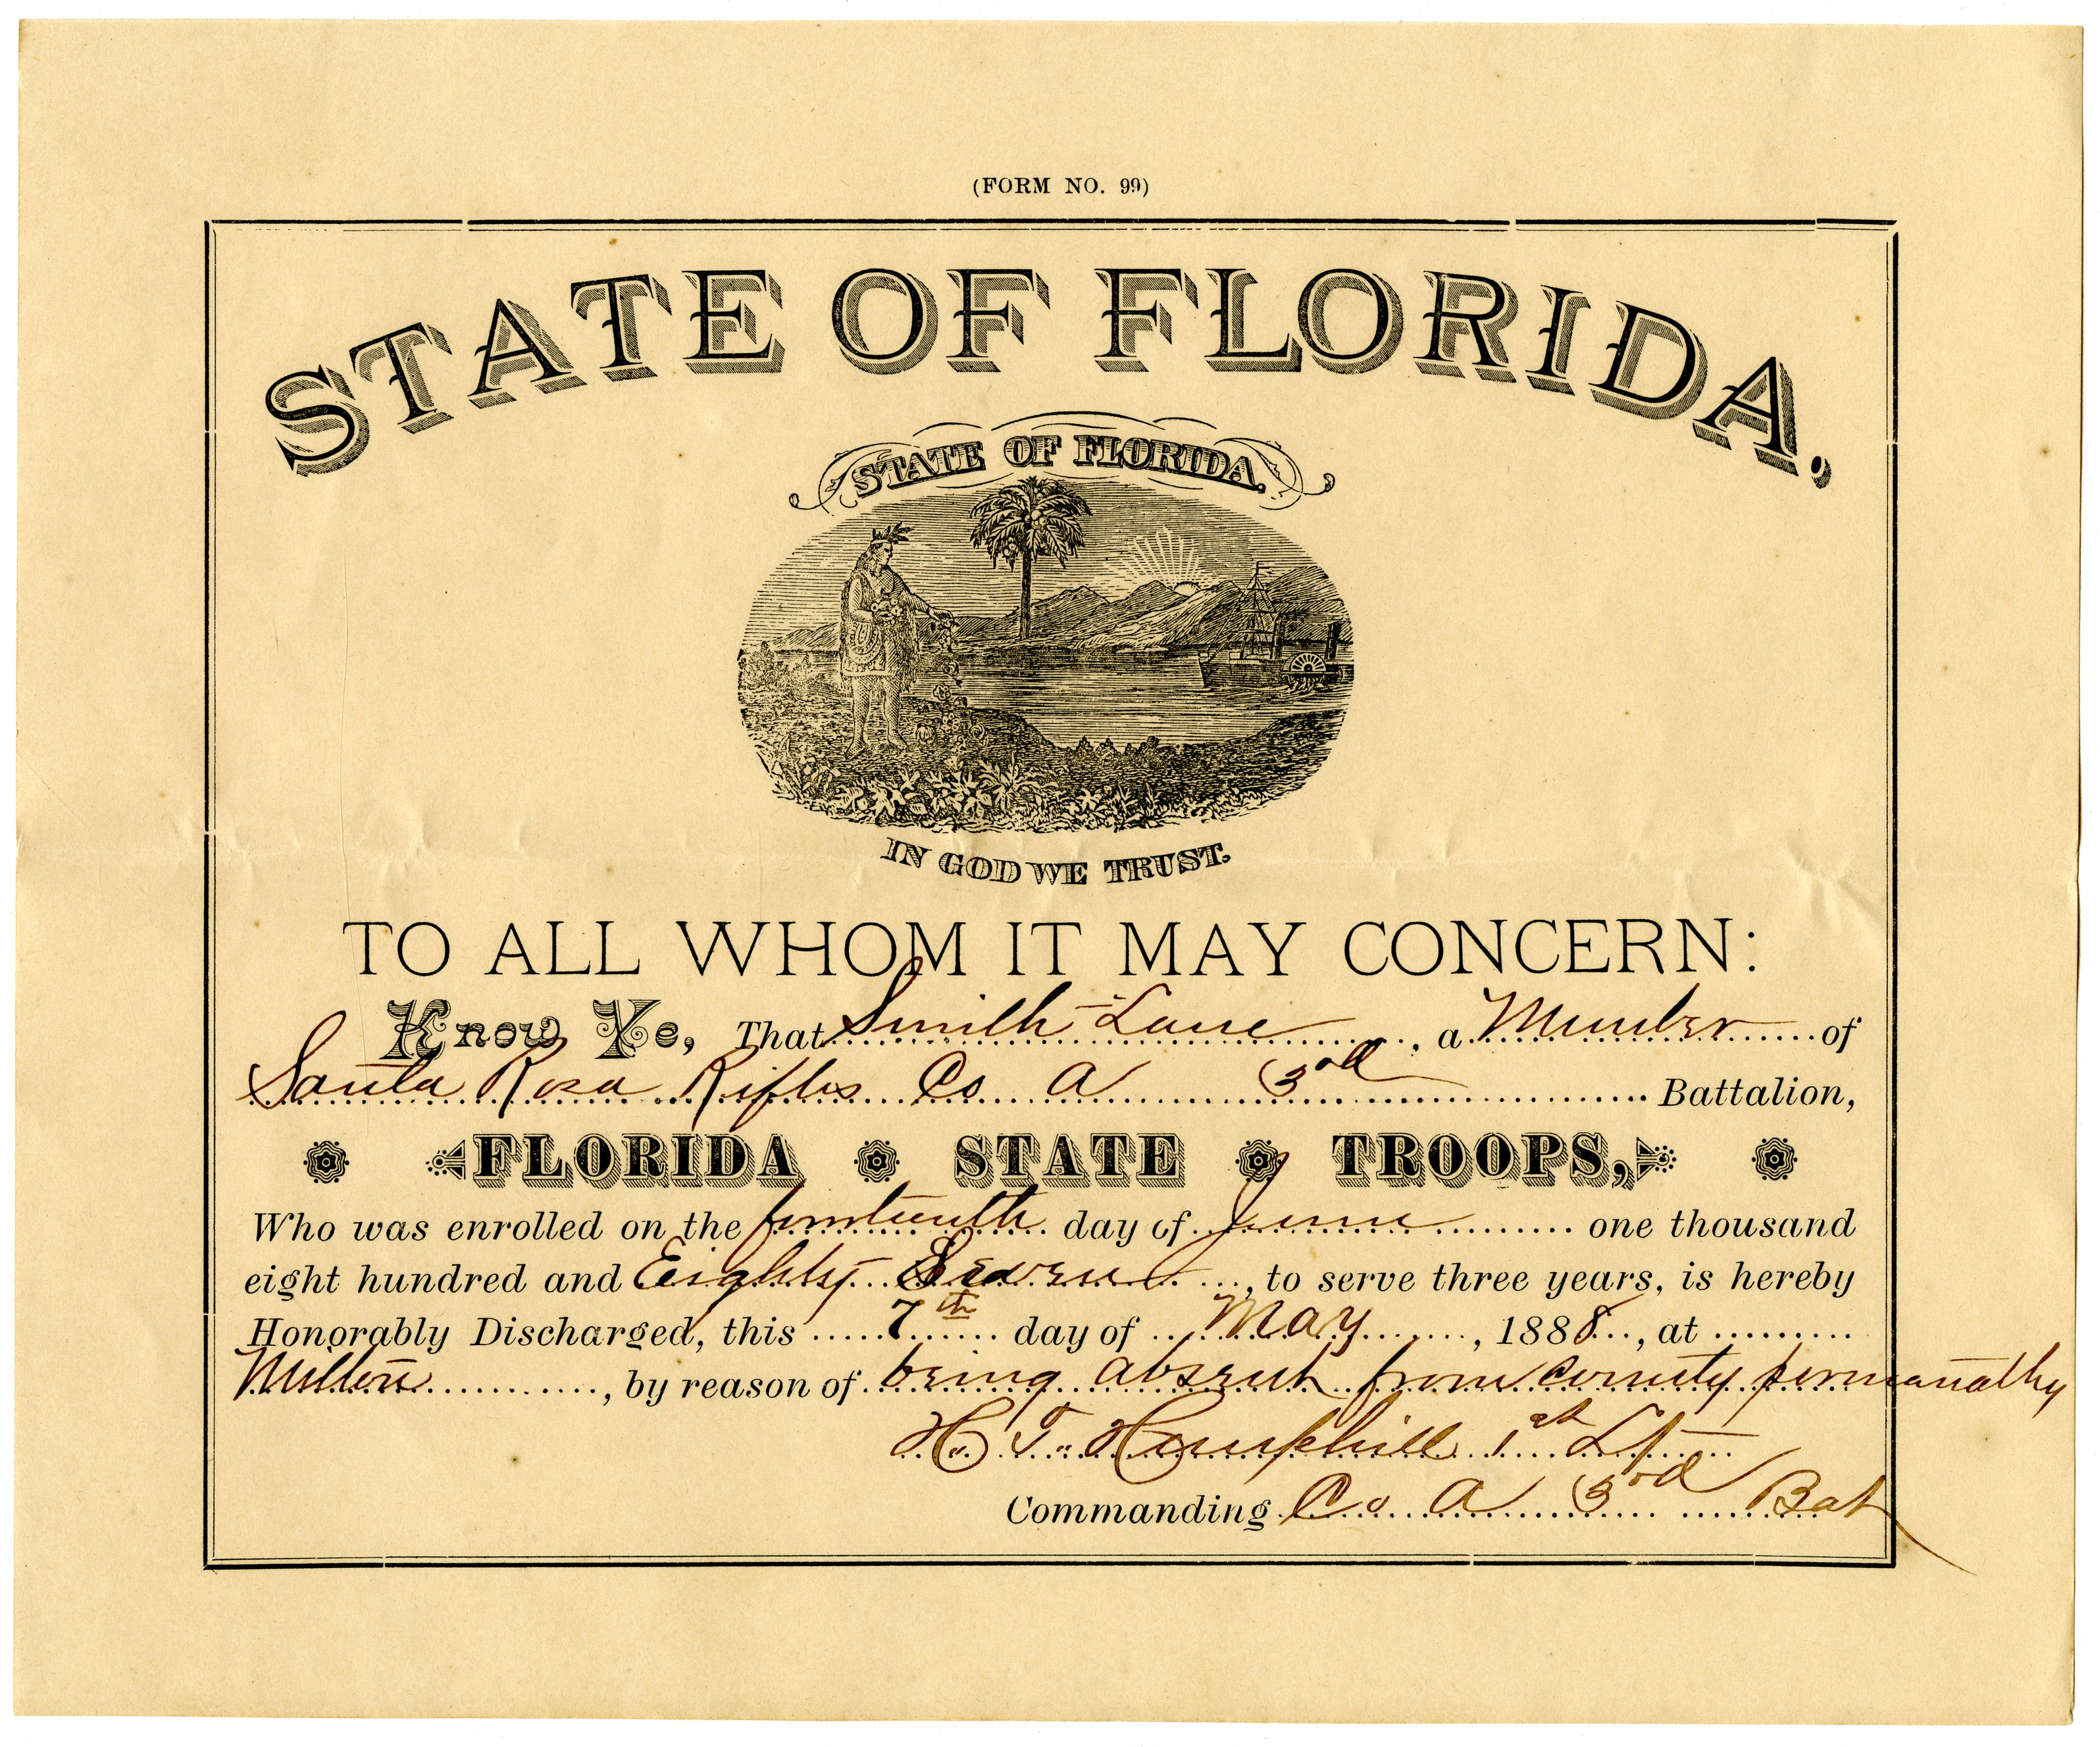 (FORM NO. 99)
STATE OF FLORIDA,
STATE OF FLORIDA.
IN GOD WE TRUST.
TO ALL WHOM IT MAY CONCERN:
Know Ye, That Smith Lane, a Member of
Santa Rosa Rifles Co A 3rd Battalion,
FLORIDA STATE TROOPS,
Who was enrolled on the day of June one thousand
eight hundred and Eighty Seven, to serve three years, is hereby
Honorably Discharged, this 7th day of May, 1888, at
Milton, by reason of being absent from county permanatly
H. T. Hemphill 1st Lt
Commanding Co A 3rd Bat